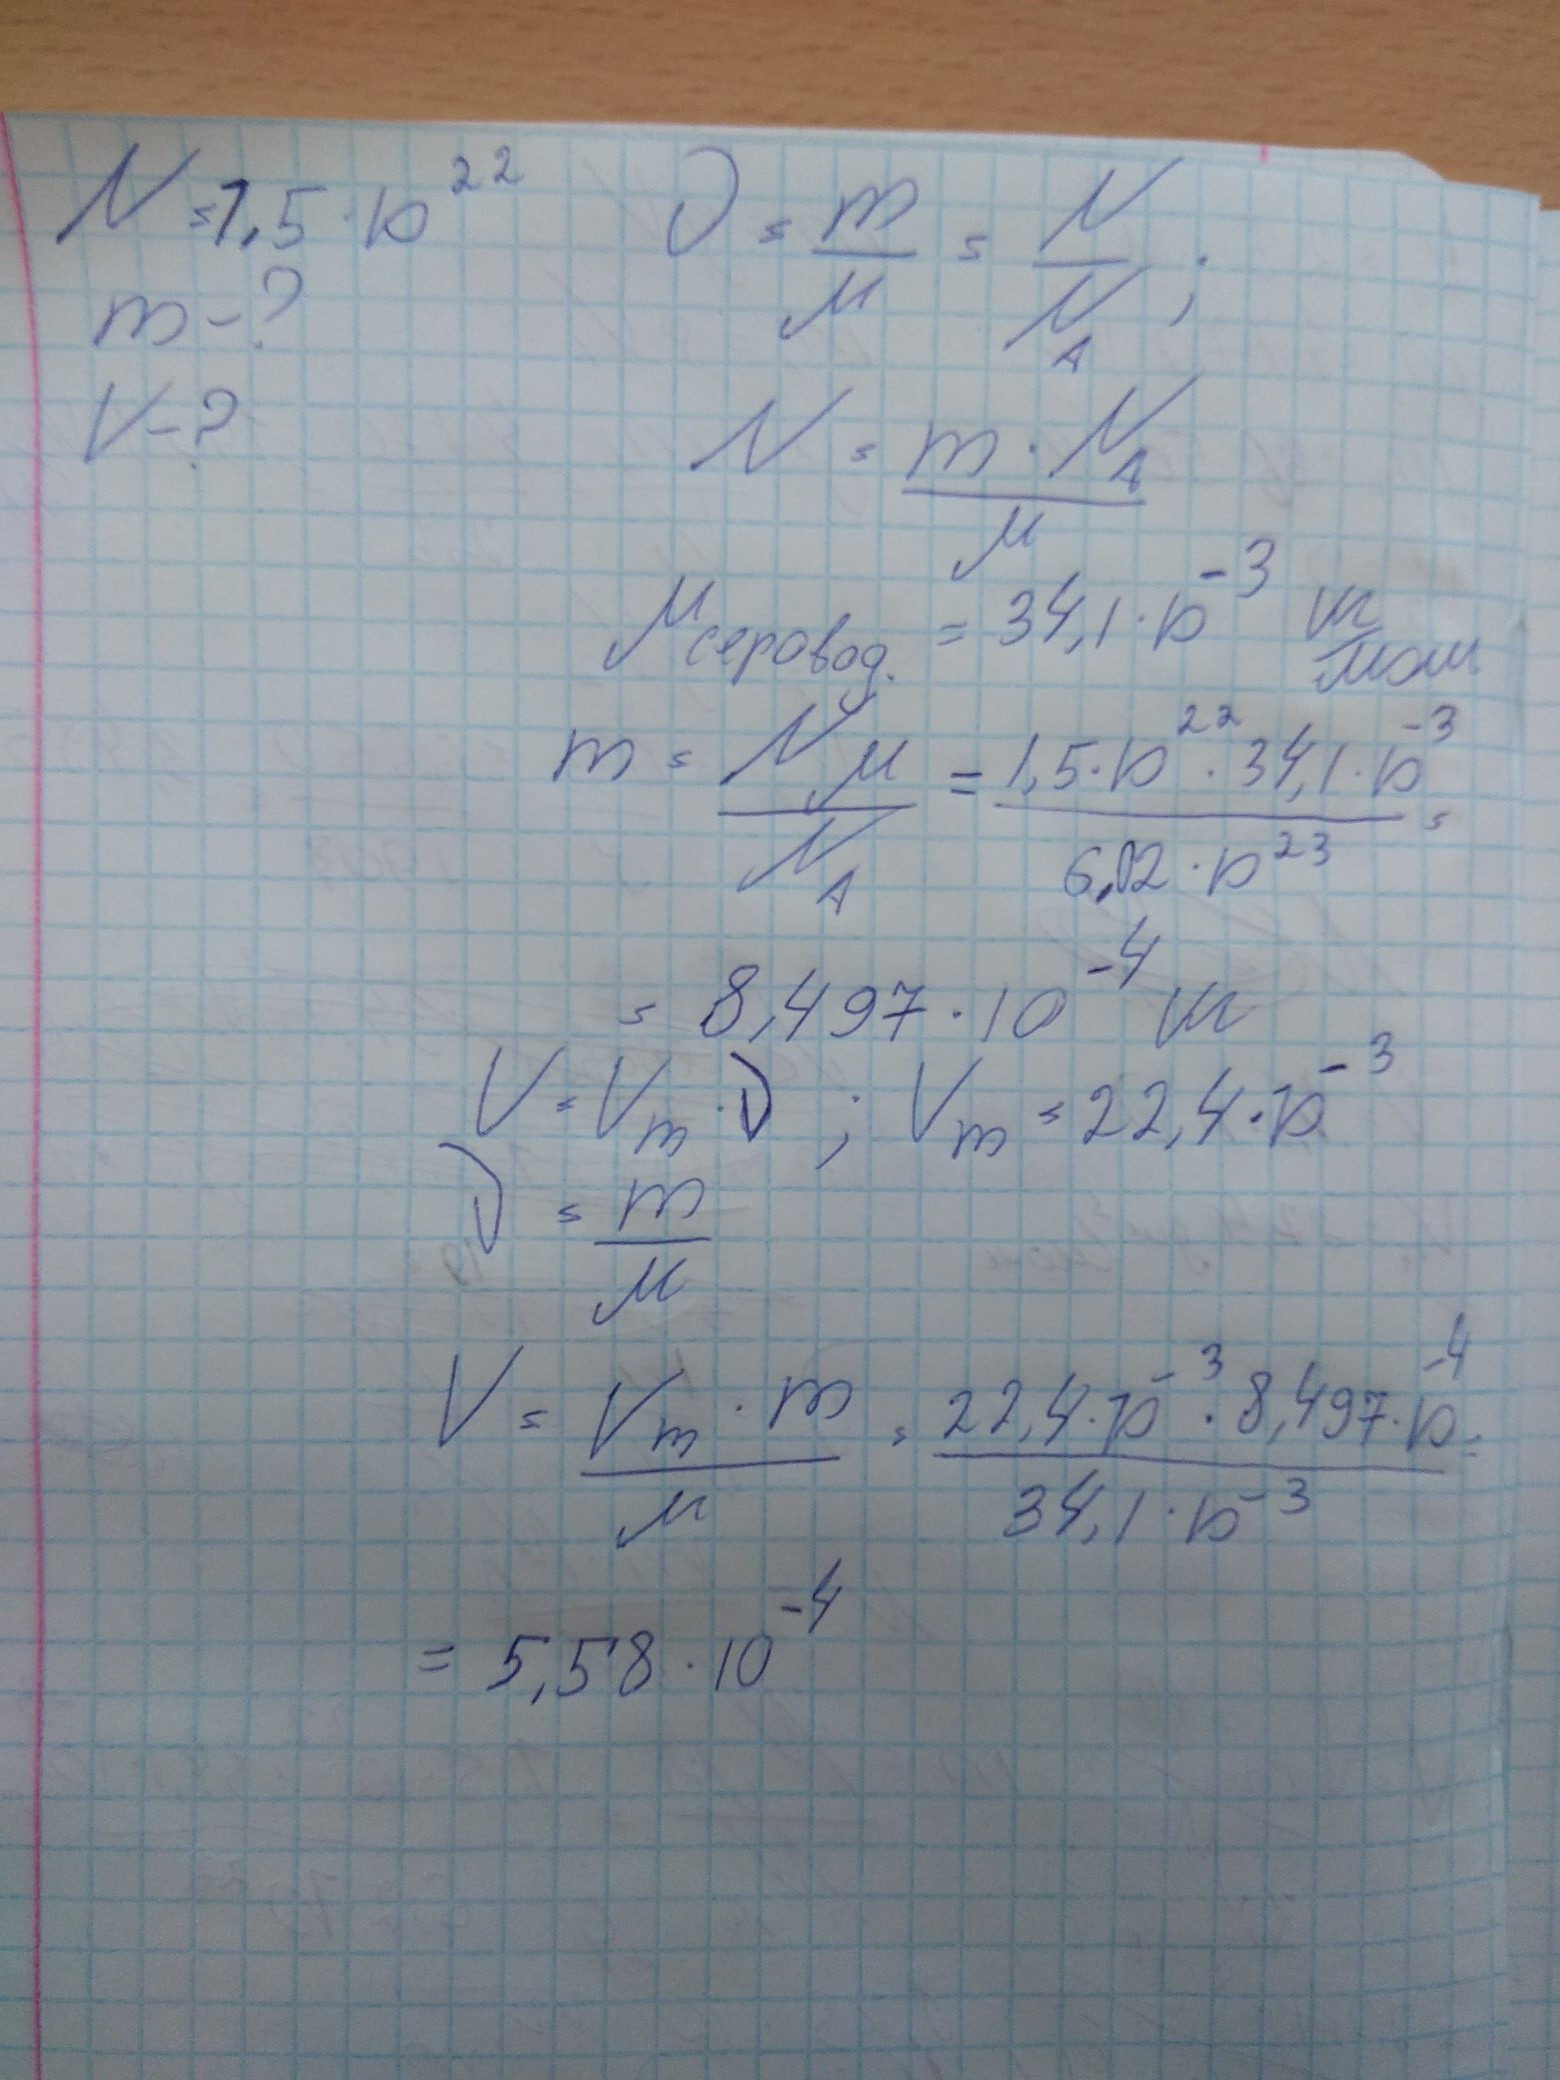 N = 1,5 · 10²²
m - ?
V - ?
ν = m/M = N/N_A ;
N = m · N_A / M
M серовод. = 34,1 · 10⁻³ кг/моль
m = N M / N_A = 1,5 · 10²² · 34,1 · 10⁻³ / 6,02 · 10²³ =
= 8,497 · 10⁻⁴ кг
V = V_m · ν ; V_m = 22,4 · 10⁻³
ν = m/M
V = V_m · m / M = 22,4 · 10⁻³ · 8,497 · 10⁻⁴ / 34,1 · 10⁻³ =
= 5,58 · 10⁻⁴